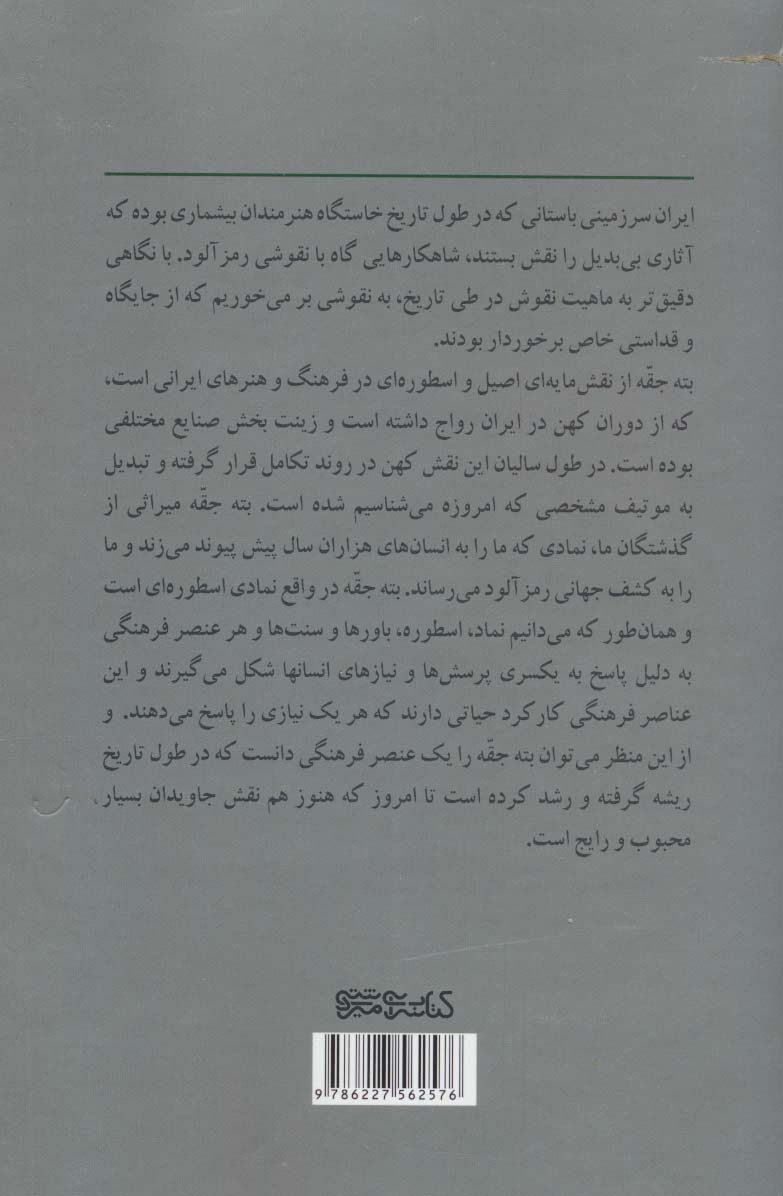 ایران سرزمینی باستانی که در طول تاریخ خاستگاه هنرمندان بیشماری بوده که
آثاری بی‌بدیل را نقش بستند، شاهکارهایی گاه با نقوشی رمزآلود. با نگاهی
دقیق‌تر به ماهیت نقوش در طی تاریخ، به نقوشی بر می‌خوریم که از جایگاه
و قداستی خاص برخوردار بودند.
بته جقّه از نقش‌مایه‌ای اصیل و اسطوره‌ای در فرهنگ و هنرهای ایرانی است،
که از دوران کهن در ایران رواج داشته است و زینت بخش صنایع مختلفی
بوده است. در طول سالیان این نقش کهن در روند تکامل قرار گرفته و تبدیل
به موتیف مشخصی که امروزه می‌شناسیم شده است. بته جقّه میراثی از
گذشتگان ما، نمادی که ما را به انسان‌های هزاران سال پیش پیوند می‌زند و ما
را به کشف جهانی رمزآلود می‌رساند. بته جقّه در واقع نمادی اسطوره‌ای است
و همان‌طور که می‌دانیم نماد، اسطوره، باورها و سنت‌ها و هر عنصر فرهنگی
به دلیل پاسخ به یکسری پرسش‌ها و نیازهای انسانها شکل می‌گیرند و این
عناصر فرهنگی کارکرد حیاتی دارند که هر یک نیازی را پاسخ می‌دهند. و
از این منظر می‌توان بته جقّه را یک عنصر فرهنگی دانست که در طول تاریخ
ریشه گرفته و رشد کرده است تا امروز که هنوز هم نقش جاویدان بسیار
محبوب و رایج است.
کتابسرای میردشتی
9 786227 562576